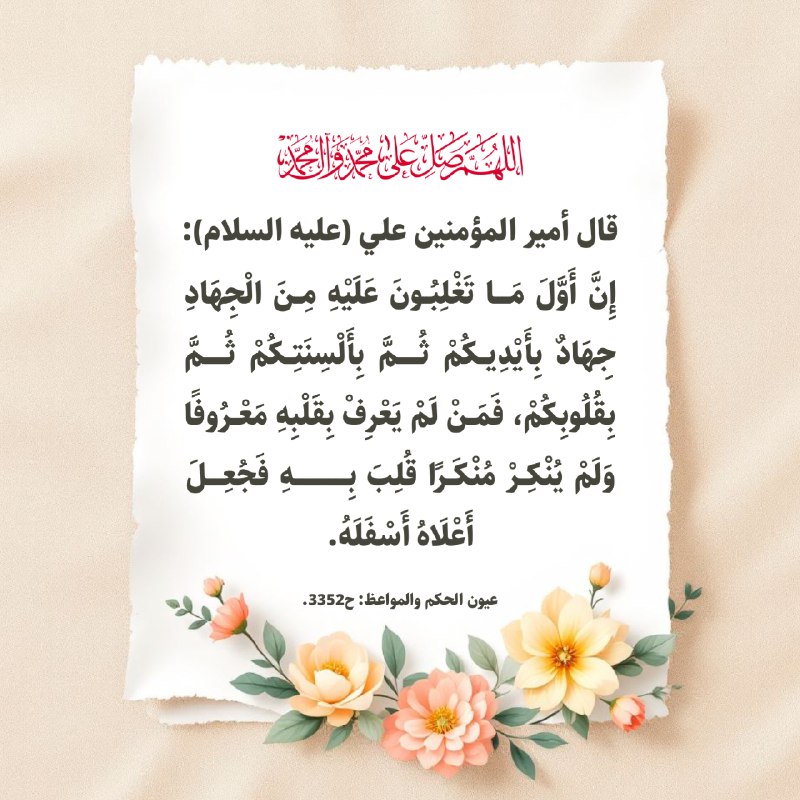 اللهم صل على محمد وآل محمد
قال أمير المؤمنين علي (عليه السلام):
إِنَّ أَوَّلَ مَــا تَغْلِبُـونَ عَلَيْهِ مِـنَ الْجِهَادِ
جِهَادٌ بِأَيْدِيـكُمْ ثُـــمَّ بِأَلْسِنَتِـكُمْ ثُـــمَّ
بِقُلُوبِكُمْ، فَمَـنْ لَمْ يَعْرِفْ بِقَلْبِهِ مَعْـرُوفًا
وَلَمْ يُنْكِـرْ مُنْكَـرًا قُلِبَ بِـــــــهِ فَجُعِــلَ
أَعْلَاهُ أَسْفَلَهُ.
عيون الحكم والمواعظ: ح3352.